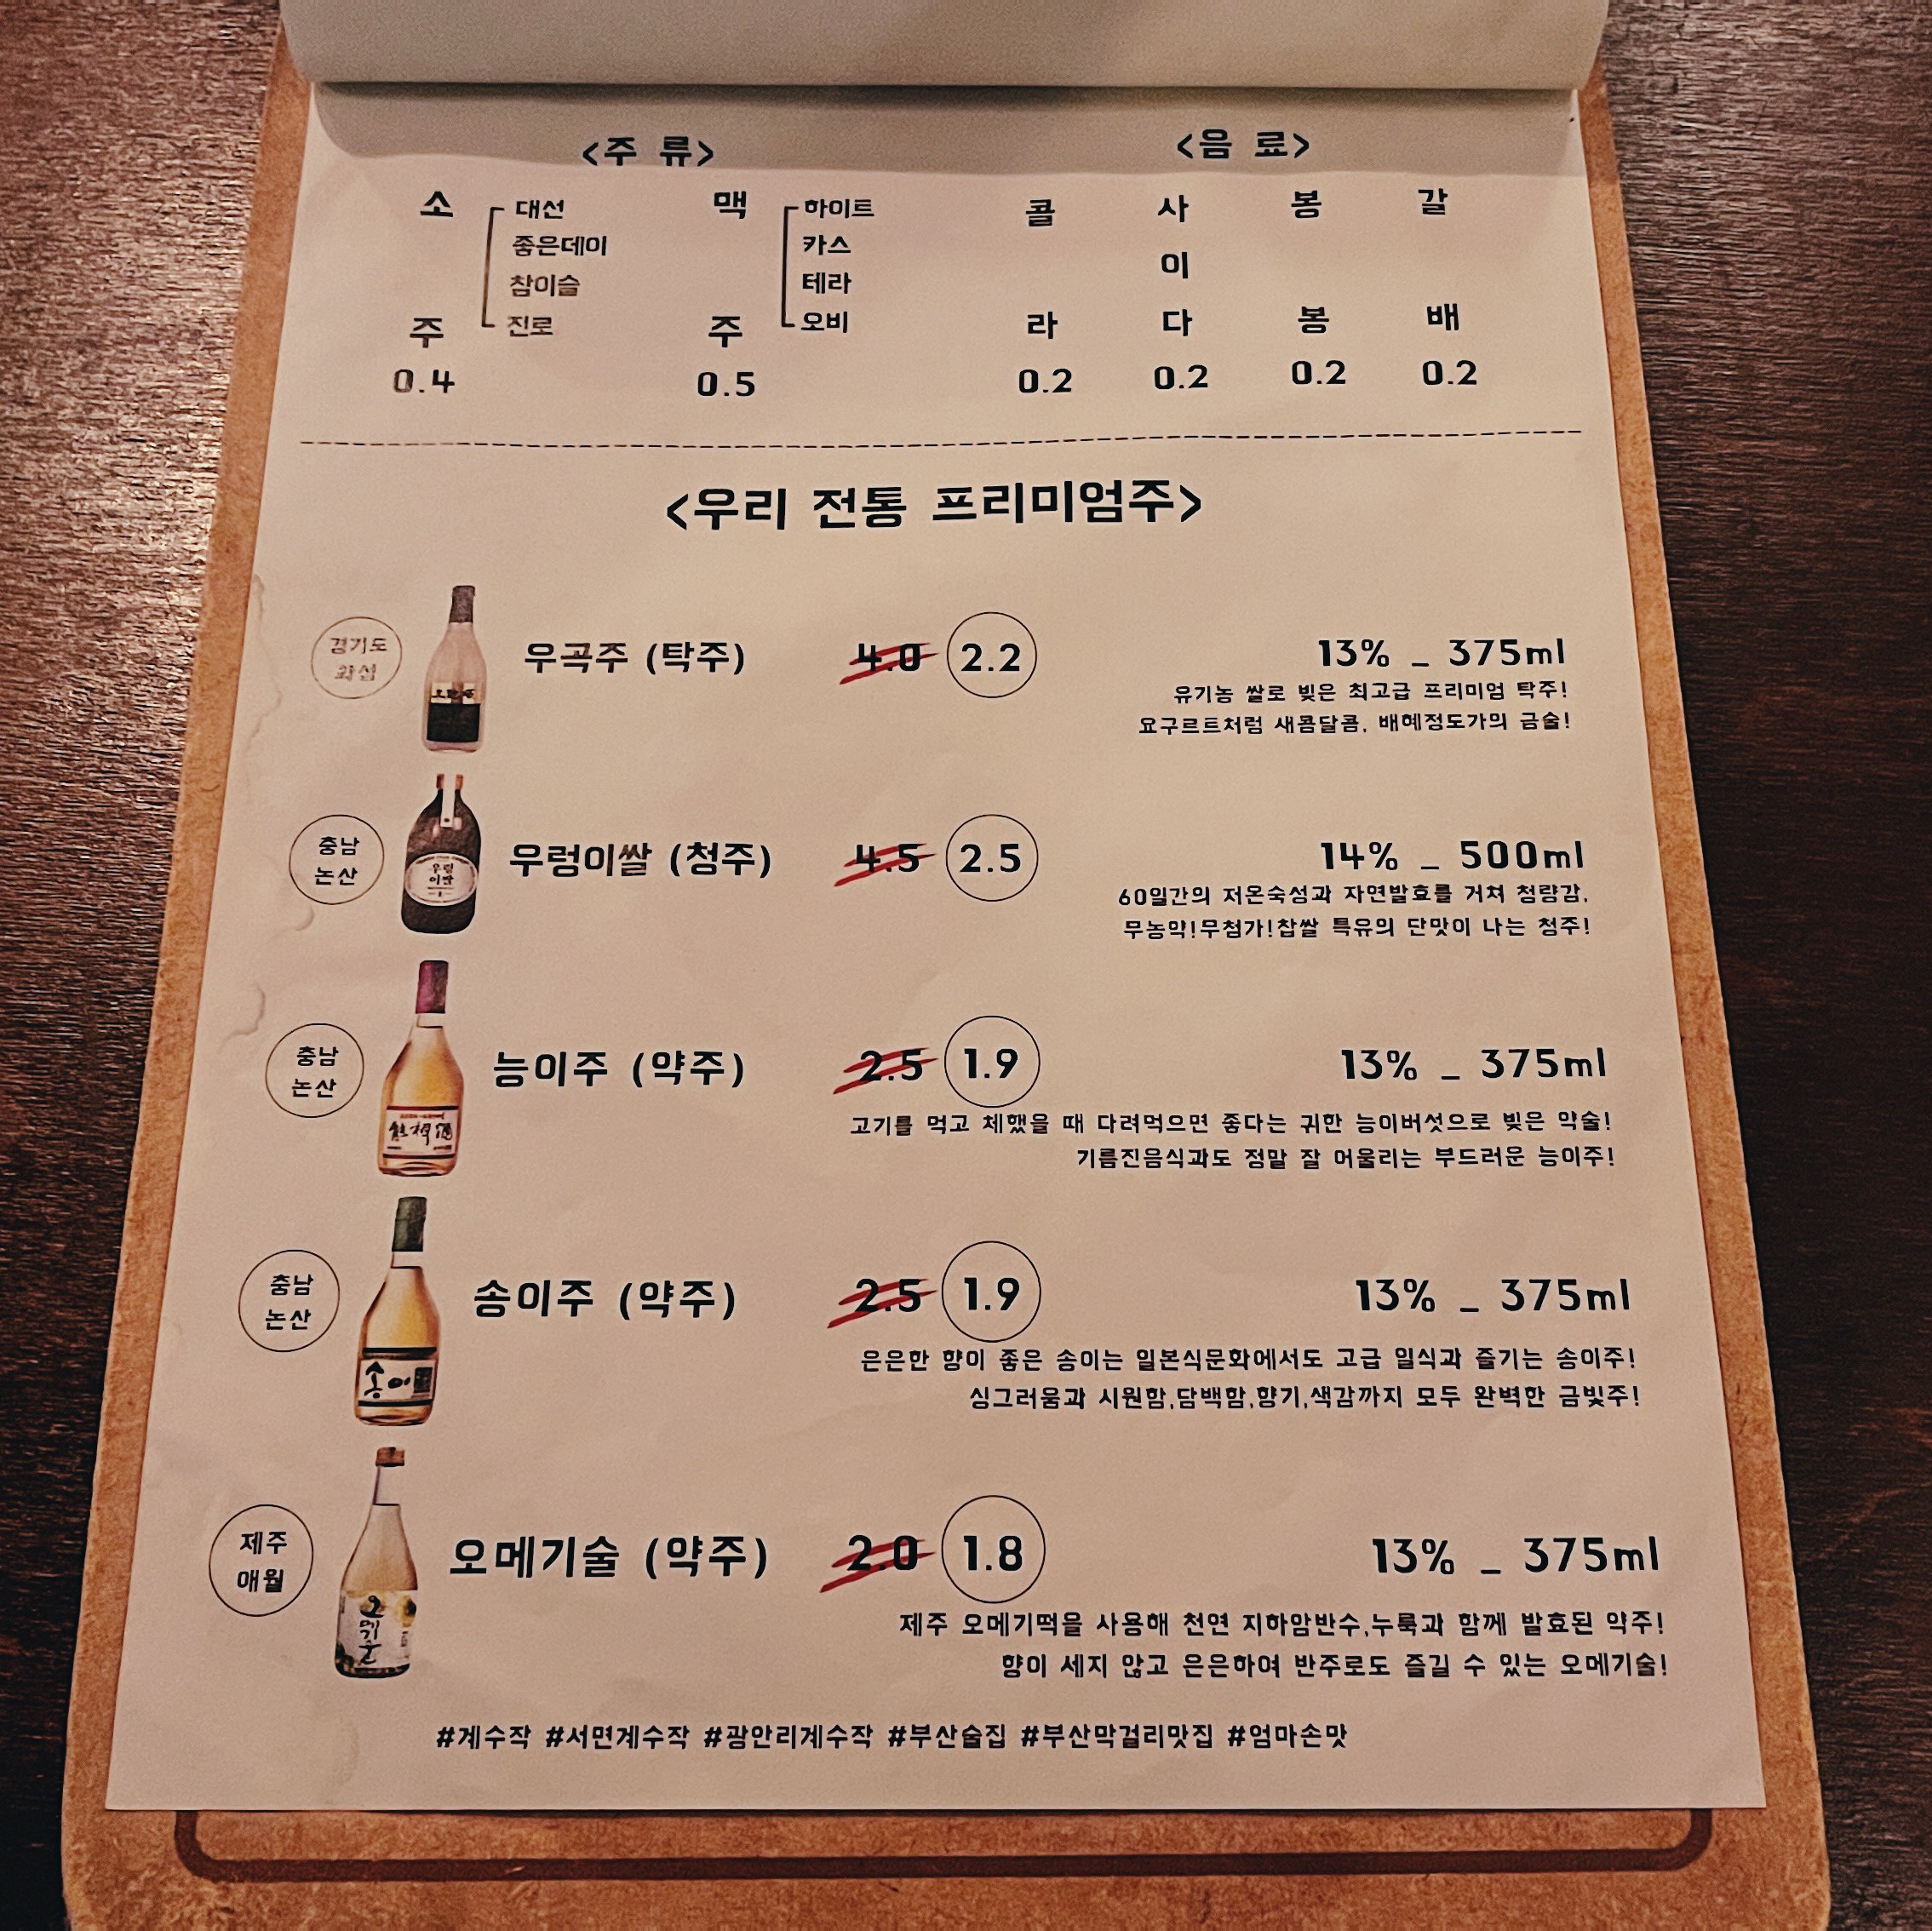 <주 류>
소주
대선
좋은데이
참이슬
진로
0.4
맥주
하이트
카스
테라
오비
0.5
<음 료>
콜라
0.2
사이다
0.2
봉봉
0.2
갈배
0.2
<우리 전통 프리미엄주>
경기도
화성
우곡주 (탁주) 4.0 2.2 13% _ 375ml
유기농 쌀로 빚은 최고급 프리미엄 탁주!
요구르트처럼 새콤달콤, 배혜정도가의 금술!
충남
논산
우렁
이쌀
우렁이쌀 (청주) 4.5 2.5 14% _ 500ml
60일간의 저온숙성과 자연발효를 거쳐 청량감,
무농약!무첨가!찹쌀 특유의 단맛이 나는 청주!
충남
논산
능이주 (약주) 2.5 1.9 13% _ 375ml
고기를 먹고 체했을 때 다려먹으면 좋다는 귀한 능이버섯으로 빚은 약술!
기름진음식과도 정말 잘 어울리는 부드러운 능이주!
충남
논산
송이
송이주 (약주) 2.5 1.9 13% _ 375ml
은은한 향이 좋은 송이는 일본식문화에서도 고급 일식과 즐기는 송이주!
싱그러움과 시원함,담백함,향기,색감까지 모두 완벽한 금빛주!
제주
애월
오메기술
오메기술 (약주) 2.0 1.8 13% _ 375ml
제주 오메기떡을 사용해 천연 지하암반수,누룩과 함께 발효된 약주!
향이 세지 않고 은은하여 반주로도 즐길 수 있는 오메기술!
#계수작 #서면계수작 #광안리계수작 #부산술집 #부산막걸리맛집 #엄마손맛